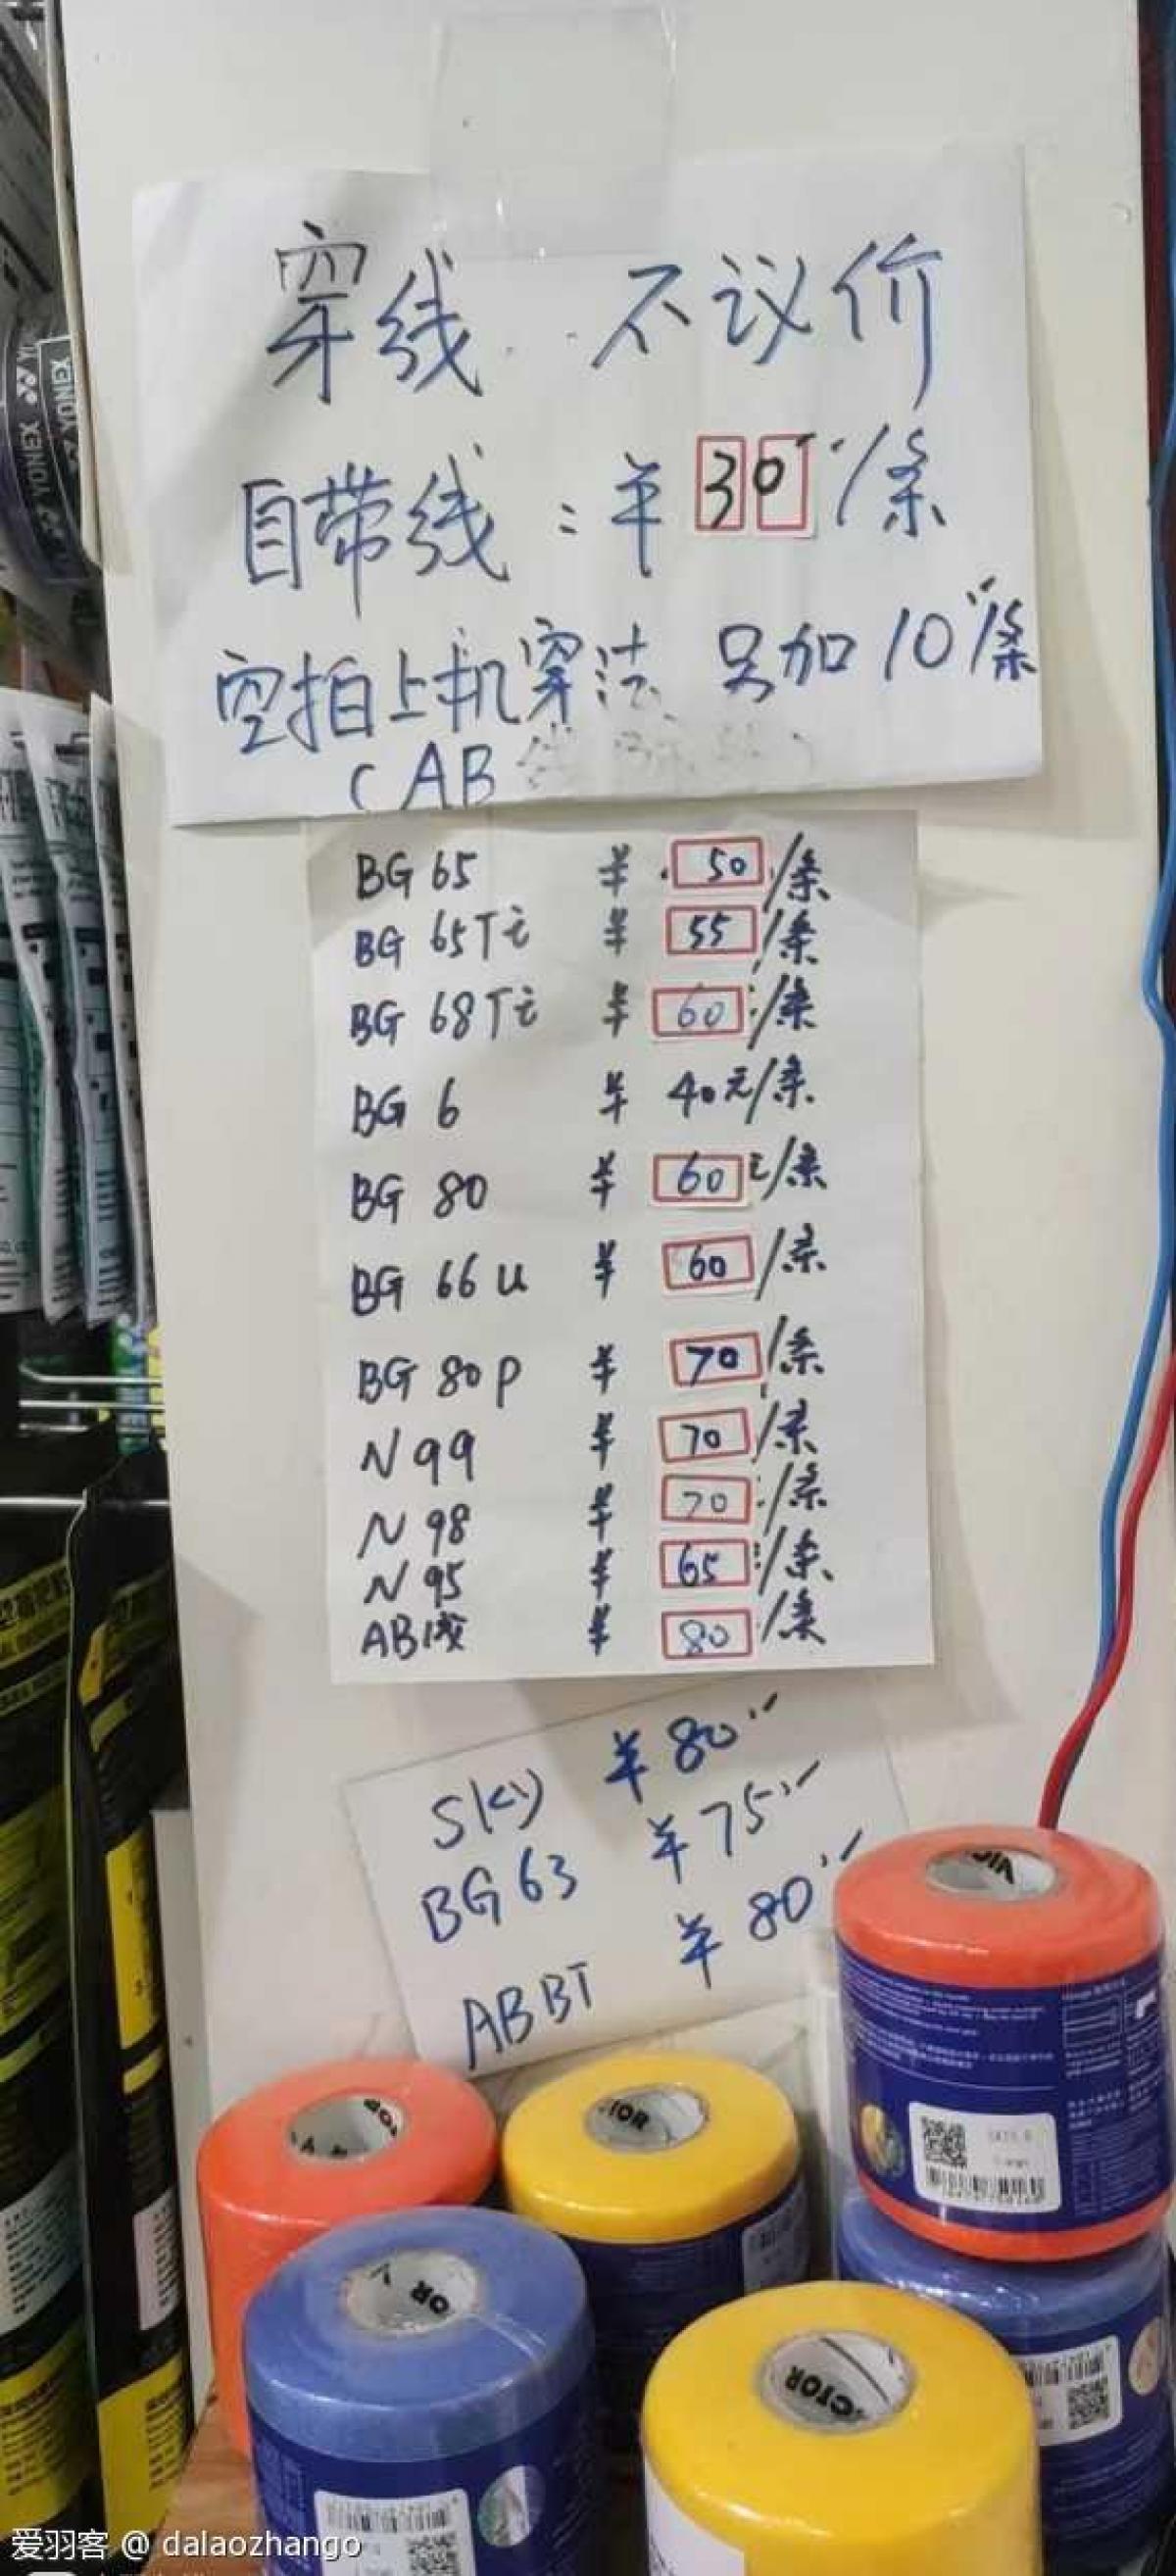 穿线 不议价
自带线：￥30元/条
空拍上机穿法 只加10元/条
(AB
BG 65 ￥50/条
BG 65Ti ￥55/条
BG 68Ti ￥60/条
BG 6 ￥40元/条
BG 80 ￥60元/条
BG 66u ￥60/条
BG 80p ￥70/条
N 99 ￥70/条
N 98 ￥70/条
N 95 ￥65/条
AB线 ￥80/条
￥80元
BG 63 ￥75元
ABBT ￥80元
YONEX
YONEX
VIC
TOR
CTOR
爱羽客 @ dalaozhango